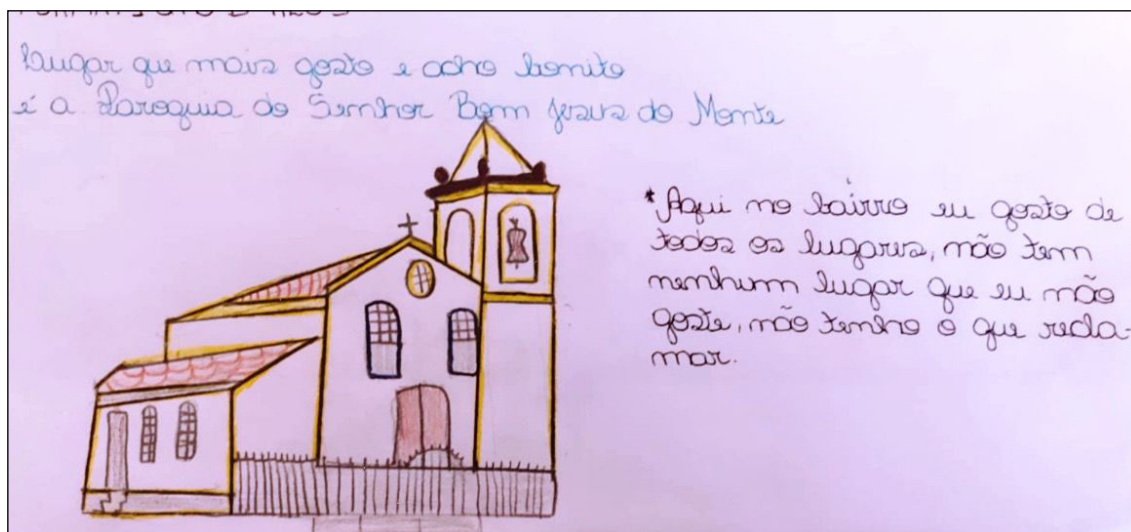 Lugar que mais gosto e acho bonito
é a Paroquia do Senhor Bom Jesus do Monte
*Aqui no bairro eu gosto de
todos os lugares, não tem
nenhum lugar que eu não
goste, não tenho o que recla-
mar.